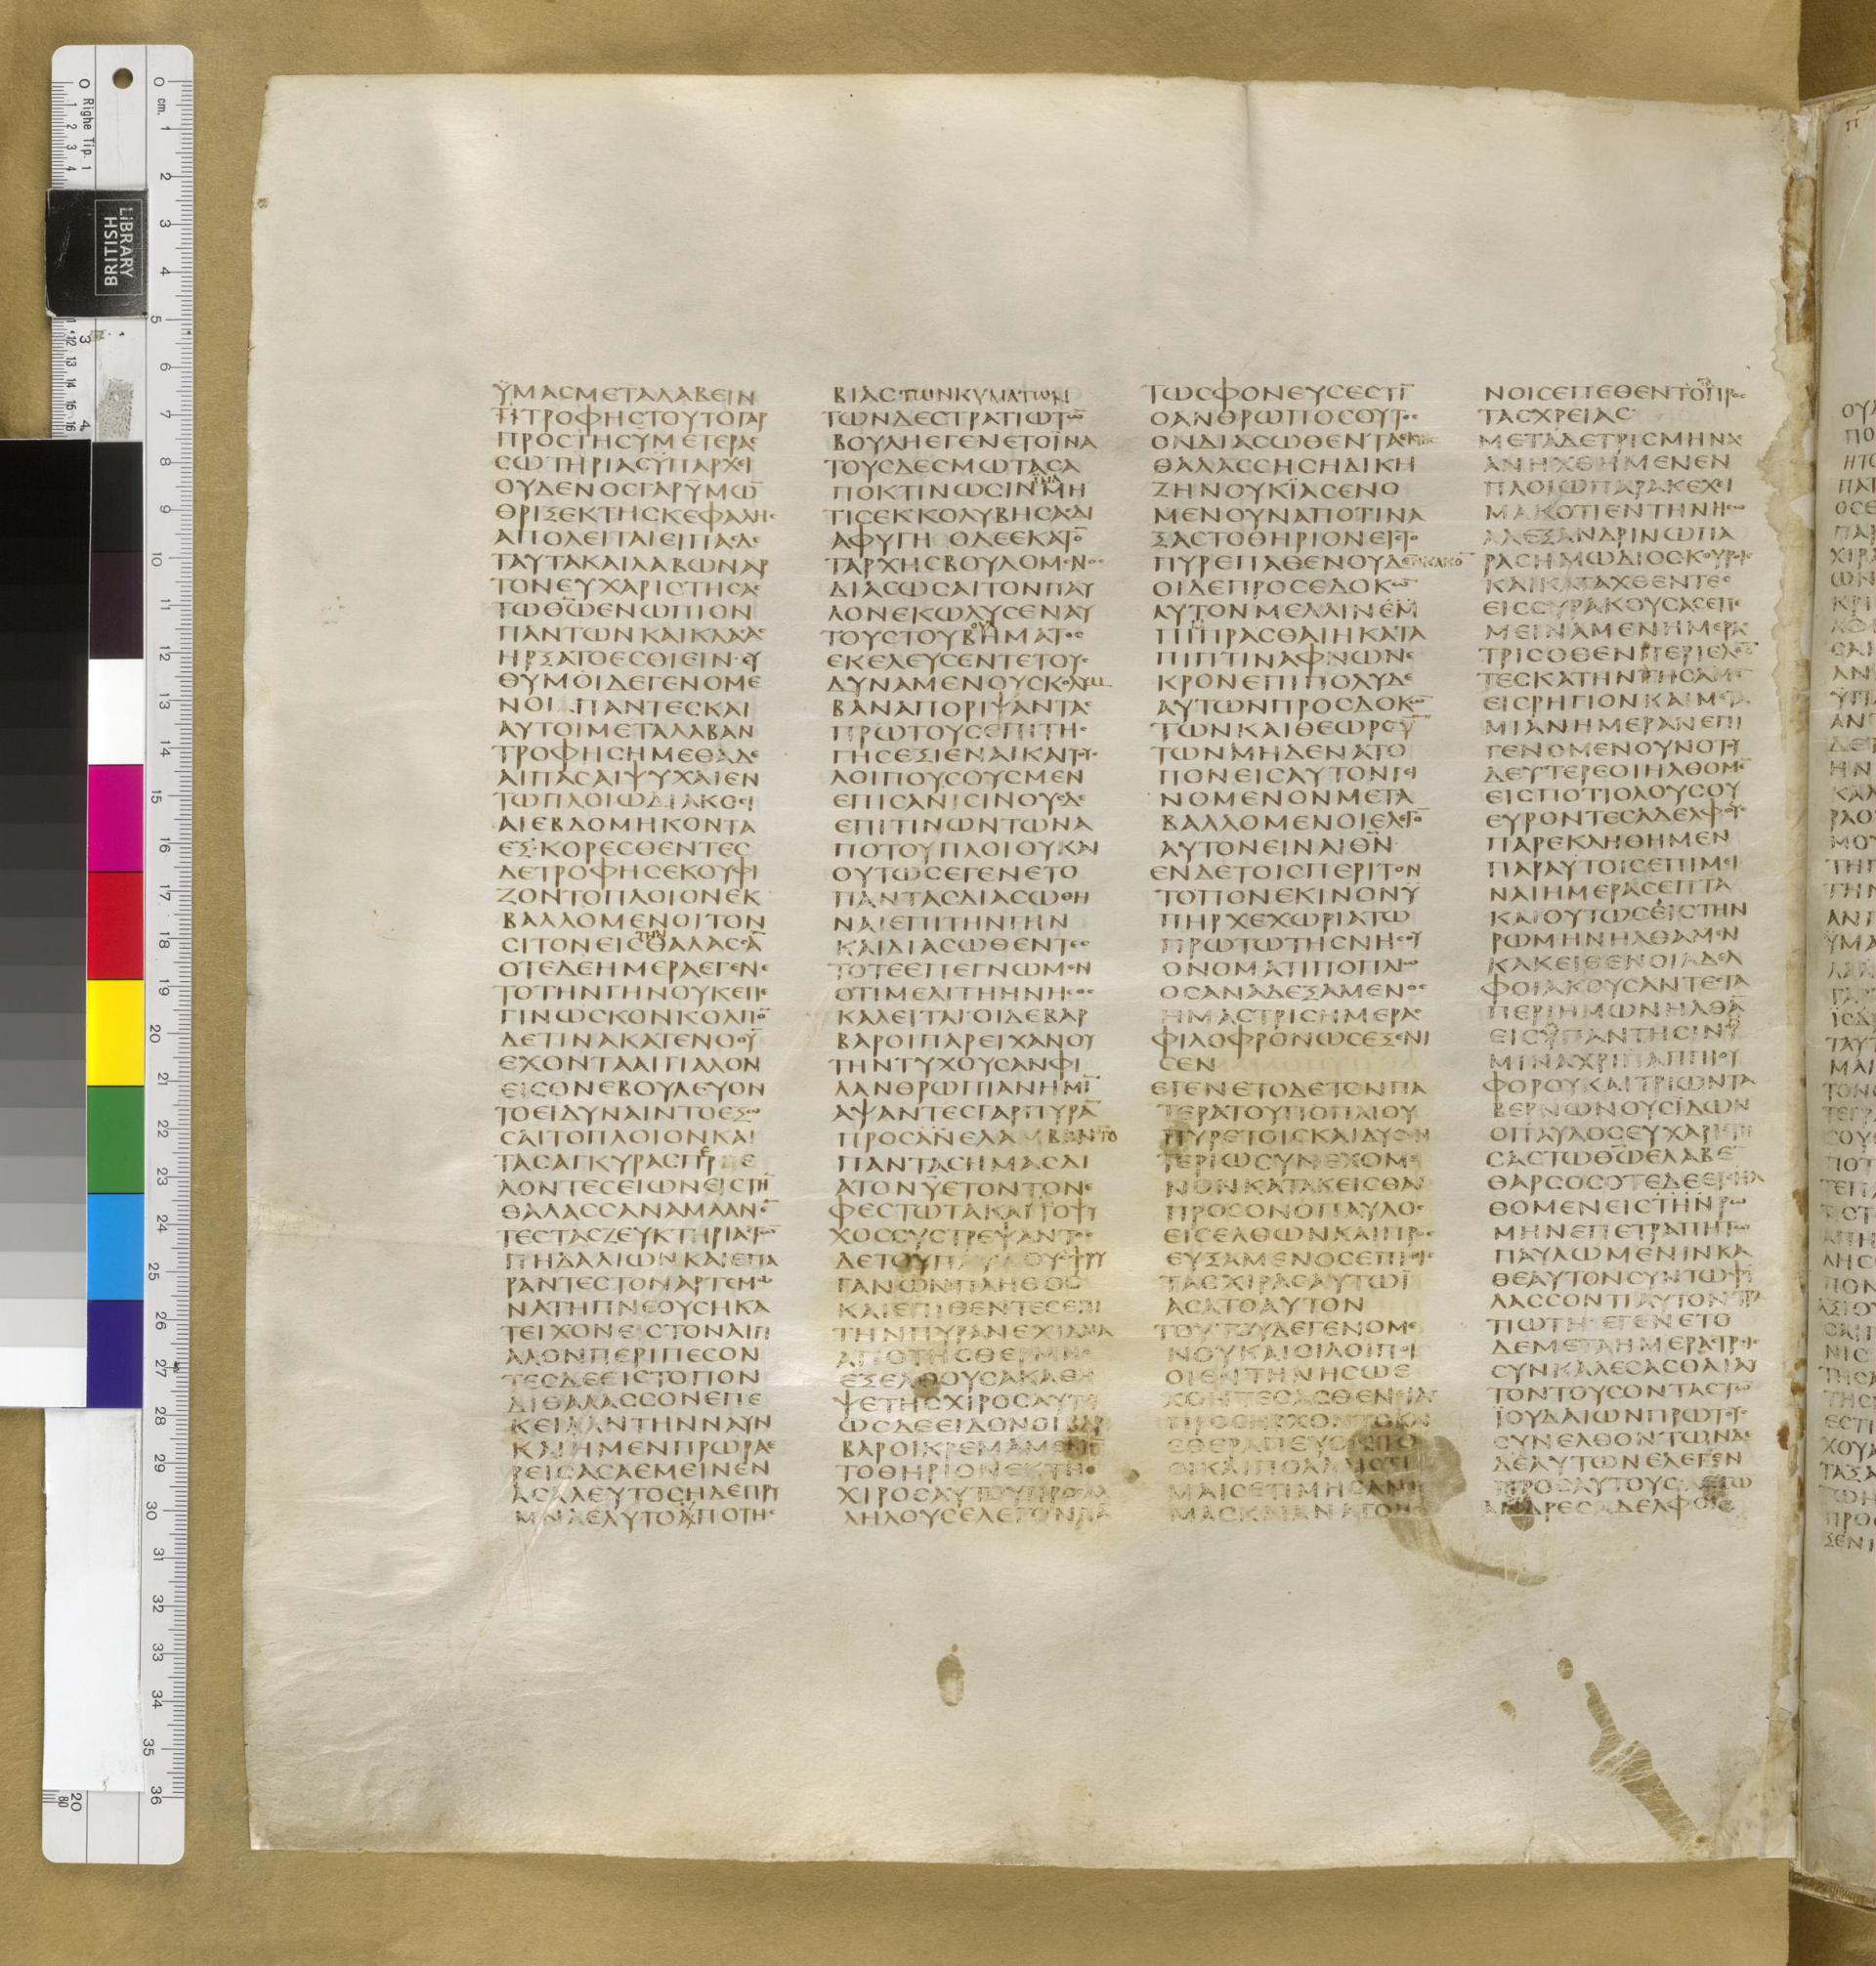 ΫΜΑCΜΕΤΑΛΑΒΕΙΝ
ΤΙΤΡΟΦΗCΤΟΥΤΟΓΑΡ
ΠΡΟCΤΗCΫΜΕΤΕΡΑC
CΩΤΗΡΙΑCΫΠΑΡΧΕΙ
ΟΥΔΕΝΟCΓΑΡΫΜΩ̅
ΘΡΙΞΕΚΤΗCΚΕΦΑΛΗC
ΑΠΟΛΕΙΤΑΙΕΙΠΑCΔΕ
ΤΑΥΤΑΚΑΙΛΑΒΩΝΑΡ
ΤΟΝΕΥΧΑΡΙCΤΗCΑC
ΤΩΘ̅Ω̅ΕΝΩΠΙΟΝ
ΠΑΝΤΩΝΚΑΙΚΛΑCΑC
ΗΡΞΑΤΟΕCΘΙΕΙΝ·ΕΥ
ΘΥΜΟΙΔΕΓΕΝΟΜΕ
ΝΟΙΑΠΑΝΤΕCΚΑΙ
ΑΥΤΟΙΜΕΤΑΛΑΒΑΝ
ΤΡΟΦΗCΗΜΕΘΑΔΕ
ΑΙΠΑCΑΙΨΥΧΑΙΕΝ
ΤΩΠΛΟΙΩΔΙΑΚΟCΙ
ΑΙΕΒΔΟΜΗΚΟΝΤΑ
ΕΞ·ΚΟΡΕCΘΕΝΤΕC
ΔΕΤΡΟΦΗCΕΚΟΥΦΙ
ΖΟΝΤΟΠΛΟΙΟΝΕΚ
ΒΑΛΛΟΜΕΝΟΙΤΟΝ
CΙΤΟΝΕΙCΤΗΝΘΑΛΑCCΑ̅
ΟΤΕΔΕΗΜΕΡΑΕΓΕΝΕ
ΤΟΤΗΝΓΗΝΟΥΚΕΠΕ
ΓΙΝΩCΚΟΝΚΟΛΠΟ̅
ΔΕΤΙΝΑΚΑΤΕΝΟΟΥ̅
ΕΧΟΝΤΑΑΙΓΙΑΛΟΝ
ΕΙCΟΝΕΒΟΥΛΕΥΟΝ
ΤΟΕΙΔΥΝΑΙΝΤΟΕΞΩ
CΑΙΤΟΠΛΟΙΟΝΚΑΙ
ΤΑCΑΓΚΥΡΑCΠΕΡΙΕ
ΛΟΝΤΕCΕΙΩΝΕΙCΤΗ̅
ΘΑΛΑCCΑΝΑΜΑΑΝΕ̅
ΤΕCΤΑCΖΕΥΚΤΗΡΙΑCΤΩ̅
ΠΗΔΑΛΙΩΝΚΑΙΕΠΑ
ΡΑΝΤΕCΤΟΝΑΡΤΕΜΩ
ΝΑΤΗΠΝΕΟΥCΗΚΑ
ΤΕΙΧΟΝΕΙCΤΟΝΑΙΓΙ
ΑΛΟΝΠΕΡΙΠΕCΟΝ
ΤΕCΔΕΕΙCΤΟΠΟΝ
ΔΙΘΑΛΑCCΟΝΕΠΕ
ΚΕΙΛΑΝΤΗΝΝΑΥΝ
ΚΑΙΗΜΕΝΠΡΩΡΑΕ
ΡΕΙCΑCΑΕΜΕΙΝΕΝ
ΑCΑΛΕΥΤΟCΗΔΕΠΡΥ
ΜΝΑΕΛΥΤΟΑΠΟΤΗC
ΒΙΑCΤΩΝΚΥΜΑΤΩΝ
ΤΩΝΔΕCΤΡΑΤΙΩΤΩ̅
ΒΟΥΛΗΕΓΕΝΕΤΟΪΝΑ
ΤΟΥCΔΕCΜΩΤΑCΑ
ΠΟΚΤΙΝΩCΙΝΜΗ
ΤΙCΕΚΚΟΛΥΒΗCΑCΔΙ
ΑΦΥΓΗ ΟΔΕΕΚΑΤΟ̅
ΤΑΡΧΗCΒΟΥΛΟΜΕΝΟC
ΔΙΑCΩCΑΙΤΟΝΠΑΥ
ΛΟΝΕΚΩΛΥCΕΝΑΥ
ΤΟΥCΤΟΥΒΗΜΑΤΟC
ΕΚΕΛΕΥCΕΝΤΕΤΟΥC
ΔΥΝΑΜΕΝΟΥCΚΟΛΥ̅
ΒΑΝΑΠΟΡΙΨΑΝΤΑC
ΠΡΩΤΟΥCΕΠΙΤΗC
ΓΗCΕΞΙΕΝΑΙΚΑΙΤΟΥC
ΛΟΙΠΟΥCΟΥCΜΕΝ
ΕΠΙCΑΝΙCΙΝΟΥCΔΕ
ΕΠΙΤΙΝΩΝΤΩΝΑ
ΠΟΤΟΥΠΛΟΙΟΥΚΑΙ
ΟΥΤΩCΕΓΕΝΕΤΟ
ΠΑΝΤΑCΔΙΑCΩΘΗ
ΝΑΙΕΠΙΤΗΝΓΗΝ
ΚΑΙΔΙΑCΩΘΕΝΤΕC
ΤΟΤΕΕΠΕΓΝΩΜΕΝ
ΟΤΙΜΕΛΙΤΗΗΝΗCΟC
ΚΑΛΕΙΤΑΙ·ΟΙΔΕΒΑΡ
ΒΑΡΟΙΠΑΡΕΙΧΑΝΟΥ
ΤΗΝΤΥΧΟΥCΑΝΦΙ
ΛΑΝΘΡΩΠΙΑΝΗΜΙ̅
ΑΨΑΝΤΕCΓΑΡΠΥΡΑ̅
ΠΡΟCΑΝΕΛΑΜΒΑΝΤΟ
ΠΑΝΤΑCΗΜΑCΔΙ
ΑΤΟΝΫΕΤΟΝΤΟΝΕ
ΦΕCΤΩΤΑΚΑΙΤΟΨΥ
ΧΟCCΥCΤΡΕΨΑΝΤΟC
ΔΕΤΟΥΠΑΥΛΟΥΦΡΥ
ΓΑΝΩΝΠΛΗΘΟC
ΚΑΙΕΠΙΘΕΝΤΕCΕΠΙ
ΤΗΝΠΥΡΑΝΕΧΙΔΝΑ
ΑΠΟΤΗCΘΕΡΜΗC
ΕΞΕΛΘΟΥCΑΚΑΘΗ
ΨΕΤΗCΧΙΡΟCΑΥΤΟΥ
ΩCΔΕΕΙΔΟΝΟΙΒΑΡ
ΒΑΡΟΙΚΡΕΜΑΜΕΝΟ̅
ΤΟΘΗΡΙΟΝΕΚΤΗC
ΧΙΡΟCΑΥΤΟΥΠΡΟCΑΛ
ΛΗΛΟΥCΕΛΕΓΟΝΠΑ̅
ΤΩCΦΟΝΕΥCΕCΤΙ̅
ΟΑΝΘΡΩΠΟCΟΥΤΟC
ΟΝΔΙΑCΩΘΕΝΤΑΕΚΤΗC
ΘΑΛΑCCΗCΗΔΙΚΗ
ΖΗΝΟΥΚΪΑCΕΝΟ
ΜΕΝΟΥΝΑΠΟΤΙΝΑ
ΞΑCΤΟΘΗΡΙΟΝΕΙCΤΟ
ΠΥΡΕΠΑΘΕΝΟΥΔΕΝΚΑΚΟ̅
ΟΙΔΕΠΡΟCΕΔΟΚΩ̅
ΑΥΤΟΝΜΕΛΛΙΝΕΜ
ΠΙΠΡΑCΘΑΙΗΚΑΤΑ
ΠΙΠΤΙΝΑΦΝΩΝΕ
ΚΡΟΝΕΠΙΠΟΛΥΔΕ
ΑΥΤΩΝΠΡΟCΔΟΚΩ̅
ΤΩΝΚΑΙΘΕΩΡΟΥ̅
ΤΩΝΜΗΔΕΝΑΤΟ
ΠΟΝΕΙCΑΥΤΟΝΓΕΙ
ΝΟΜΕΝΟΝΜΕΤΑ
ΒΑΛΛΟΜΕΝΟΙΕΛΕΓΟ̅
ΑΥΤΟΝΕΙΝΑΙΘ̅Ν̅
ΕΝΔΕΤΟΙCΠΕΡΙΤΟΝ
ΤΟΠΟΝΕΚΙΝΟΝΫ
ΠΗΡΧΕΧΩΡΙΑΤΩ
ΠΡΩΤΩΤΗCΝΗCΟΥ
ΟΝΟΜΑΤΙΠΟΠΛΙΩ
ΟCΑΝΑΔΕΞΑΜΕΝΟC
ΗΜΑCΤΡΙCΗΜΕΡΑC
ΦΙΛΟΦΡΟΝΩCΕΞΕΝΙ
CΕΝ
ΕΓΕΝΕΤΟΔΕΤΟΝΠΑ
ΤΕΡΑΤΟΥΠΟΠΛΙΟΥ
ΠΥΡΕΤΟΙCΚΑΙΔΥCΕΝ
ΤΕΡΙΩCΥΝΕΧΟΜΕ
ΝΟΝΚΑΤΑΚΕΙCΘΑΙ
ΠΡΟCΟΝΟΠΑΥΛΟC
ΕΙCΕΛΘΩΝΚΑΙΠΡΟC
ΕΥΞΑΜΕΝΟCΕΠΙΘΕΙC
ΤΑCΧΙΡΑCΑΥΤΩΪ
ΑCΑΤΟΑΥΤΟΝ
ΤΟΥΤΟΥΔΕΓΕΝΟΜΕ
ΝΟΥΚΑΙΟΙΛΟΙΠΟΙ
ΟΙΕΝΤΗΝΗCΩΕ
ΧΟΝΤΕCΑCΘΕΝΙΑC
ΠΡΟCΗΡΧΟΝΤΟΚΑΙ
ΕΘΕΡΑΠΕΥΟΝΤΟ
ΟΙΚΑΙΠΟΛΛΑΙCΤΙ
ΜΑΙCΕΤΙΜΗCΑΝΗ
ΜΑCΚΑΙΑΝΑΓΟΜΕ
ΝΟΙCΕΠΕΘΕΝΤΟΠΡΟC
ΤΑCΧΡΕΙΑC
ΜΕΤΑΔΕΤΡΙCΜΗΝΑC
ΑΝΗΧΘΗΜΕΝΕΝ
ΠΛΟΙΩΠΑΡΑΚΕΧΕΙ
ΜΑΚΟΤΙΕΝΤΗΝΗCΩ
ΑΛΕΞΑΝΔΡΙΝΩΠΑ
ΡΑCΗΜΩΔΙΟCΚΟΥΡΟΙC
ΚΑΙΚΑΤΑΧΘΕΝΤΕC
ΕΙCCΥΡΑΚΟΥCΑCΕΠΕ
ΜΕΙΝΑΜΕΝΗΜΕΡΑC
ΤΡΙCΟΘΕΝΠΕΡΙΕΛΟ̅
ΤΕCΚΑΤΗΝΤΗCΑΜΕ̅
ΕΙCΡΗΓΙΟΝΚΑΙΜΕΤΑ
ΜΙΑΝΗΜΕΡΑΝΕΠΙ
ΓΕΝΟΜΕΝΟΥΝΟΤΟΥ
ΔΕΥΤΕΡΕΟΙΗΛΘΟΜΕ̅
ΕΙCΠΟΤΙΟΛΟΥCΟΥ
ΕΥΡΟΝΤΕCΑΔΕΛΦΟΥC
ΠΑΡΕΚΛΗΘΗΜΕΝ
ΠΑΡΑΥΤΟΙCΕΠΙΜΕΙ
ΝΑΙΗΜΕΡΑCΕΠΤΑ
ΚΑΙΟΥΤΩCΕΙCΤΗΝ
ΡΩΜΗΝΗΛΘΑΜΕΝ
ΚΑΚΕΙΘΕΝΟΙΑΔΕΛ
ΦΟΙΑΚΟΥCΑΝΤΕCΤΑ
ΠΕΡΙΗΜΩΝΗΛΘΑ̅
ΕΙCΫΠΑΝΤΗCΙΝΫ
ΜΙΝΑΧΡΙΑΠΠΙΟΥ
ΦΟΡΟΥΚΑΙΤΡΙΩΝΤΑ
ΒΕΡΝΩΝΟΥCΪΔΩΝ
ΟΠΑΥΛΟCΕΥΧΑΡΙCΤΗ
CΑCΤΩΘ̅Ω̅ΕΛΑΒΕ
ΘΑΡCΟCΟΤΕΔΕΕΙCΗΛ
ΘΟΜΕΝΕΙCΤΗΝΡΩ
ΜΗΝΕΠΕΤΡΑΠΗΤΩ
ΠΑΥΛΩΜΕΝΙΝΚΑ
ΘΕΑΥΤΟΝCΥΝΤΩΦΥ
ΛΑCCΟΝΤΙΑΥΤΟΝCΤΡΑ
ΤΙΩΤΗ·ΕΓΕΝΕΤΟ
ΔΕΜΕΤΑΗΜΕΡΑCΤΡΕΙC
CΥΝΚΑΛΕCΑCΘΑΙΑΥ
ΤΟΝΤΟΥCΟΝΤΑCΤΩ̅
ΪΟΥΔΑΙΩΝΠΡΩΤΟΥC
CΥΝΕΛΘΟΝΤΩΝΑΥ
ΔΕΑΥΤΩΝΕΛΕΓΕΝ
ΠΡΟCΑΥΤΟΥCΕΓΩ
ΑΝΔΡΕCΑΔΕΛΦΟΙ
LIBRARY
BRITISH